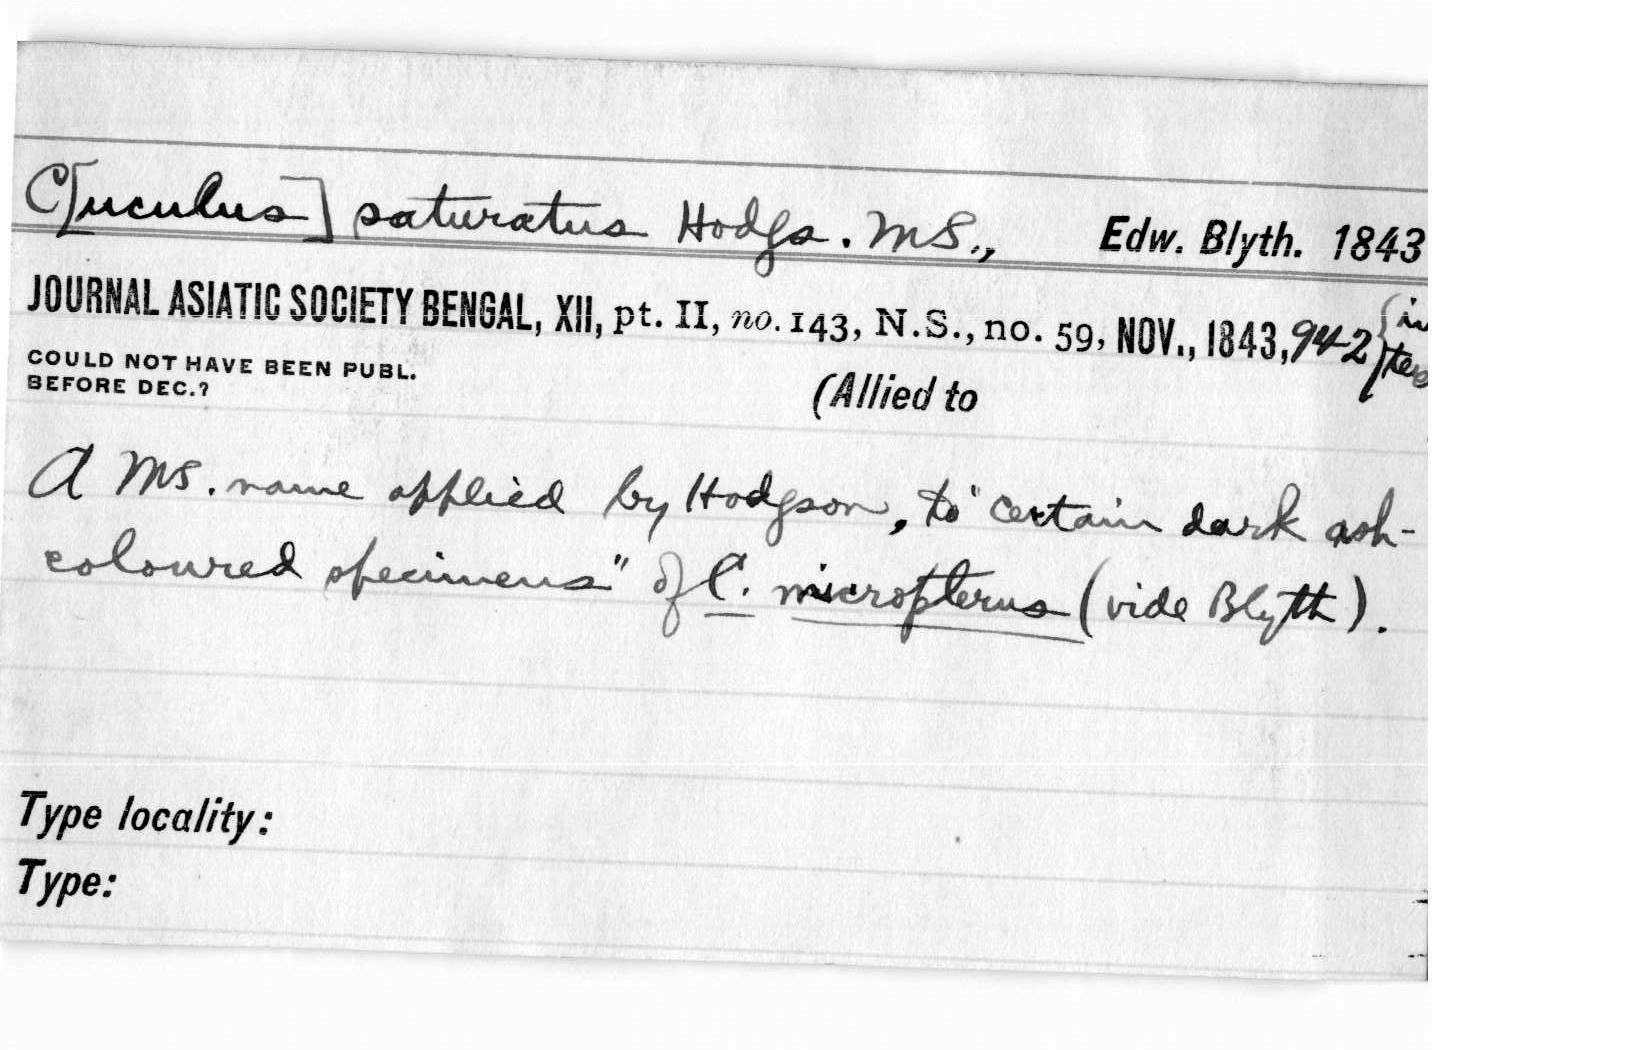 C[uculus] saturatus Hodgs. MS., Edw. Blyth. 1843
JOURNAL ASIATIC SOCIETY BENGAL, XII, pt. II, no. 143, N.S., no. 59, NOV., 1843, 942 {in
COULD NOT HAVE BEEN PUBL.
BEFORE DEC.?
(Allied to
A MS. name applied by Hodgson, to "certain dark ash-
coloured specimens" of C. micropterus (vide Blyth).
Type locality:
Type: